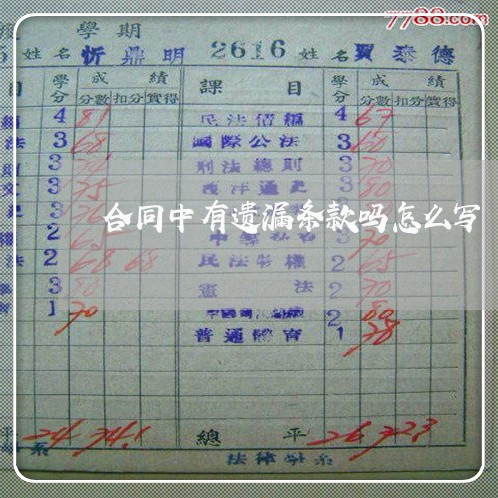 7788.com
學期
5 姓名 忻鼎明 2616 姓名 賈泰德
目 學分 成績 課目 學分 成績
分數 扣分 實得 分數 扣分 實得
4 81 民法債編 4 67
法 3 68 國際公法 3 60
3 刑法總則 3 70
3 75 西洋通史 3 80
3
合同中有遗漏条款吗怎么写
2 3 70
法 2 68 68 民法物權 2 65
3 80 憲法 2 70
1 70 2 80
普通體育 1 78
平 24 74.1 總平 26 72.3
系 法律學系